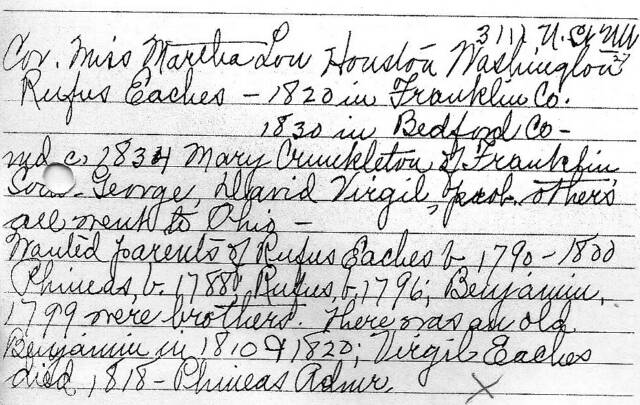 3111 N. St NW
Cor. Miss Martha Lou Houston Washington
Rufus Eaches - 1820 in Franklin Co.
1830 in Bedford Co -
md c. 1834 Mary Crunkleton of Franklin
Sons - George, David Virgil, prob. others
all went to Ohio -
Wanted parents of Rufus Eaches b. 1790-1800
Phineas, b. 1788; Rufus, b. 1796; Benjamin,
1799 were brothers. There was an old
Benjamin in 1810 & 1820; Virgil Eaches
died 1818 - Phineas Admr. X